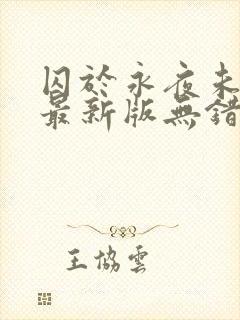 囚於永夜未
最新版無錯
王協雲